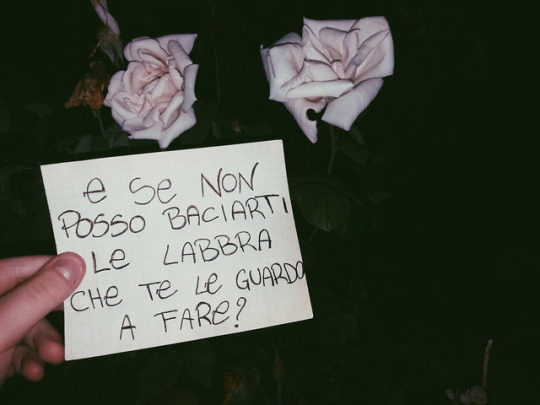 e Se NON
POSSO BACIARTI
Le LABBRA
CHe Te Le GUARDO
A FARe?